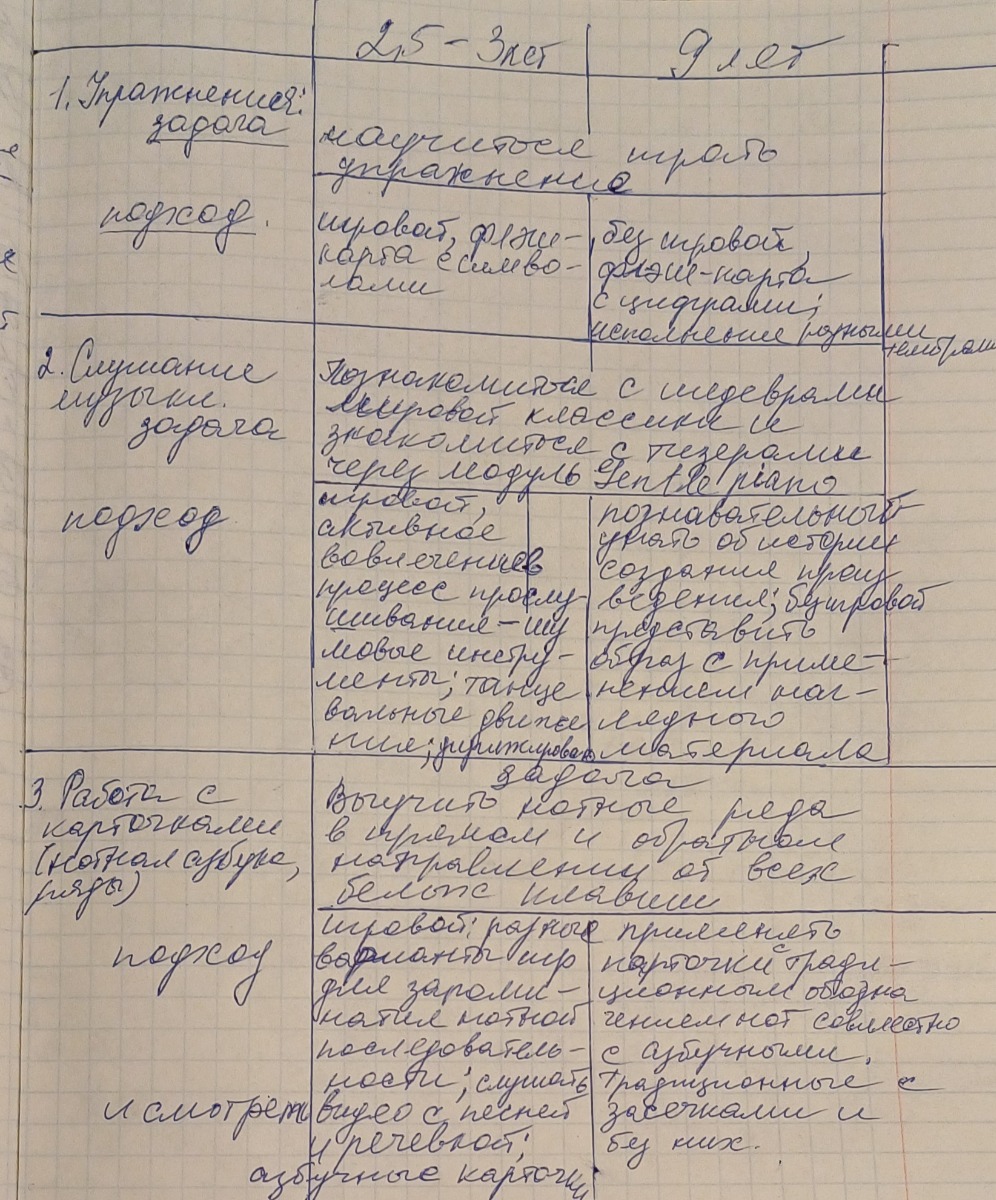 2,5 – 3 лет
9 лет
1. Упражнения:
задача
научиться играть
упражнение
подход.
игровой, флэш-
карта с симво-
лами
без игровой,
флэш-карта
с цифрами;
исполнение разными
тембрами
2. Слушание
музыки.
задача
Познакомиться с шедеврами
мировой классики и
знакомиться с тизерами
через модуль Gentle piano
подход
игровой,
активное
вовлечение в
процесс прослу-
шивания – шу
мовые инстру-
менты; танце
вальные движе
ния; дирижирован
познавательный
узнать об истории
создания произ
ведения; безигровой
представить
образ с приме-
нением наг-
лядного
материала
3. Работа с
карточками
(нотная азбука,
ряды)
задача
Выучить нотные ряда
в прямом и обратном
направлении от всех
белых клавиш
подход
игровой: разные
варианты игр
для запоми-
натия нотной
последователь-
ности; слушать
и смотреть видео с песней
и речевкой;
азбучные карточки
применять
карточки с тради-
ционным обозна
чением нот совместно
с азбучными.
Традиционные с
засечками и
без них.